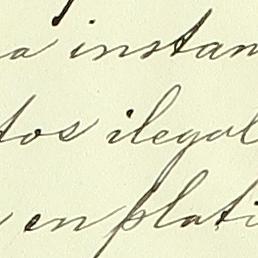 a instan
tos ilegal
en plati